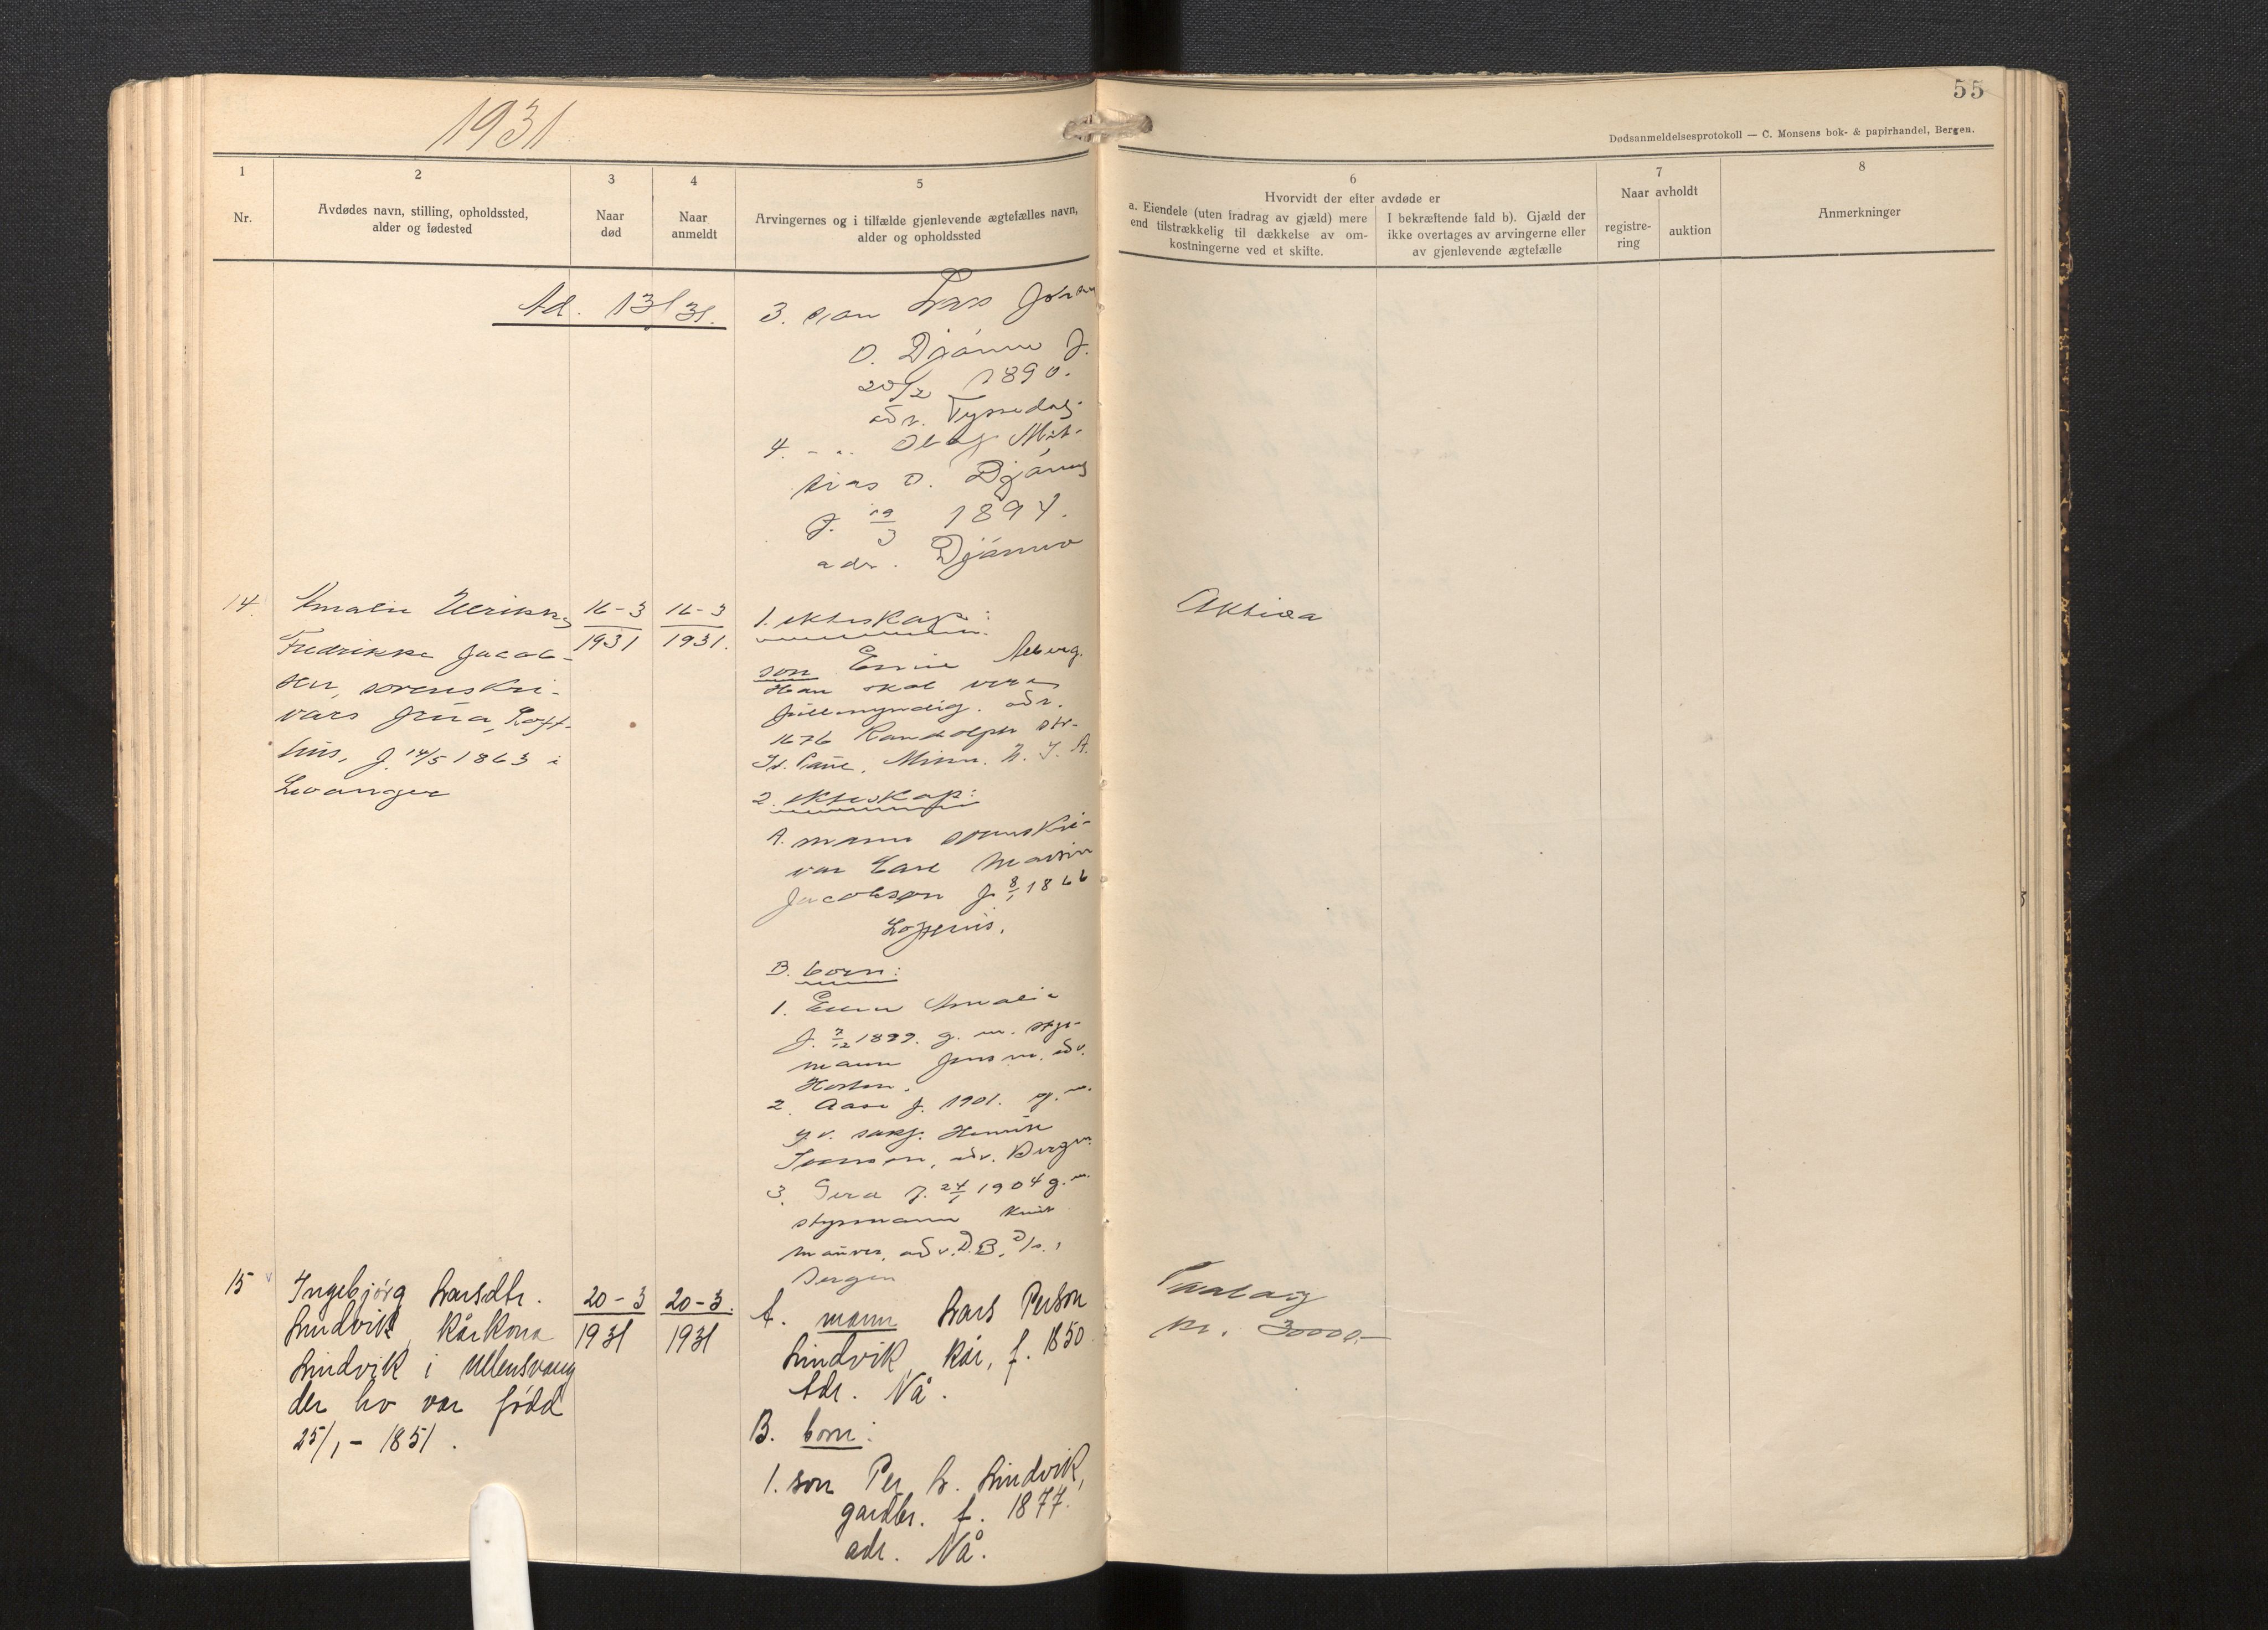 1931
55
Dødsanmeldelsesprotokoll — C. Monsens bok- & papirhandel, Bergen.
1
Nr.
2
Avdødes navn, stilling, opholdssted,
alder og fødested
3
Naar
død
4
Naar
anmeldt
5
Arvingernes og i tilfælde gjenlevende ægtefælles navn,
alder og opholdssted
6
Hvorvidt der efter avdøde er
a. Eiendele (uten fradrag av gjæld) mere
end tilstrækkelig til dækkelse av om-
kostningerne ved et skifte.
I bekræftende fald b). Gjæld der
ikke overtages av arvingerne eller
av gjenlevende ægtefælle
7
Naar avholdt
registre-
ring
auktion
8
Anmerkninger
Ad. 13/31.
3. son Lars Johan
O. Djønne f.
20/2 1890.
adr. Tyssedal.
4. - " - Olaf Mat-
hias O. Djønne
f. 19/3 1894.
adr. Djønno
14.
Amalie Ulrikke
Fredrikke Jacob-
sen, sorenskri-
vars frua, Loft-
hus, f. 14/5 1863 i
Levanger
16-3
1931
16-3
1931.
1. ekteskap:
son
Han skal vera
fullmyndig. adr.
1676 Randolph str.
St. Paul, Minn. U. S. A.
2. ekteskap:
A. mann sorenskri-
var Carl Martin
Jacobsen f. 8/1 1866
Lofthus.
B. born:
1. Amalie
f. 7/12 1899. g. m. styr-
mann adr.
Horten.
2. Aase f. 1901. g. m.
o.r. sakf. Henrik
adr. Bergen.
3. f. 24/1 1904 g. m.
styrmann Knut
adr. D.B. D/s.,
Bergen
Aktiva
15
Ingebjørg Larsdtr.
Lindvik, kårkona
Lindvik i Ullensvang
der ho var fødd
25/1 - 1851.
20-3
1931
20-3.
1931
A. mann Lars Person
Lindvik, kår, f. 1850
Adr. Nå.
B. born:
1. son Per L. Lindvik,
gardbr. f. 1877.
adr. Nå.
kr. 3000.-